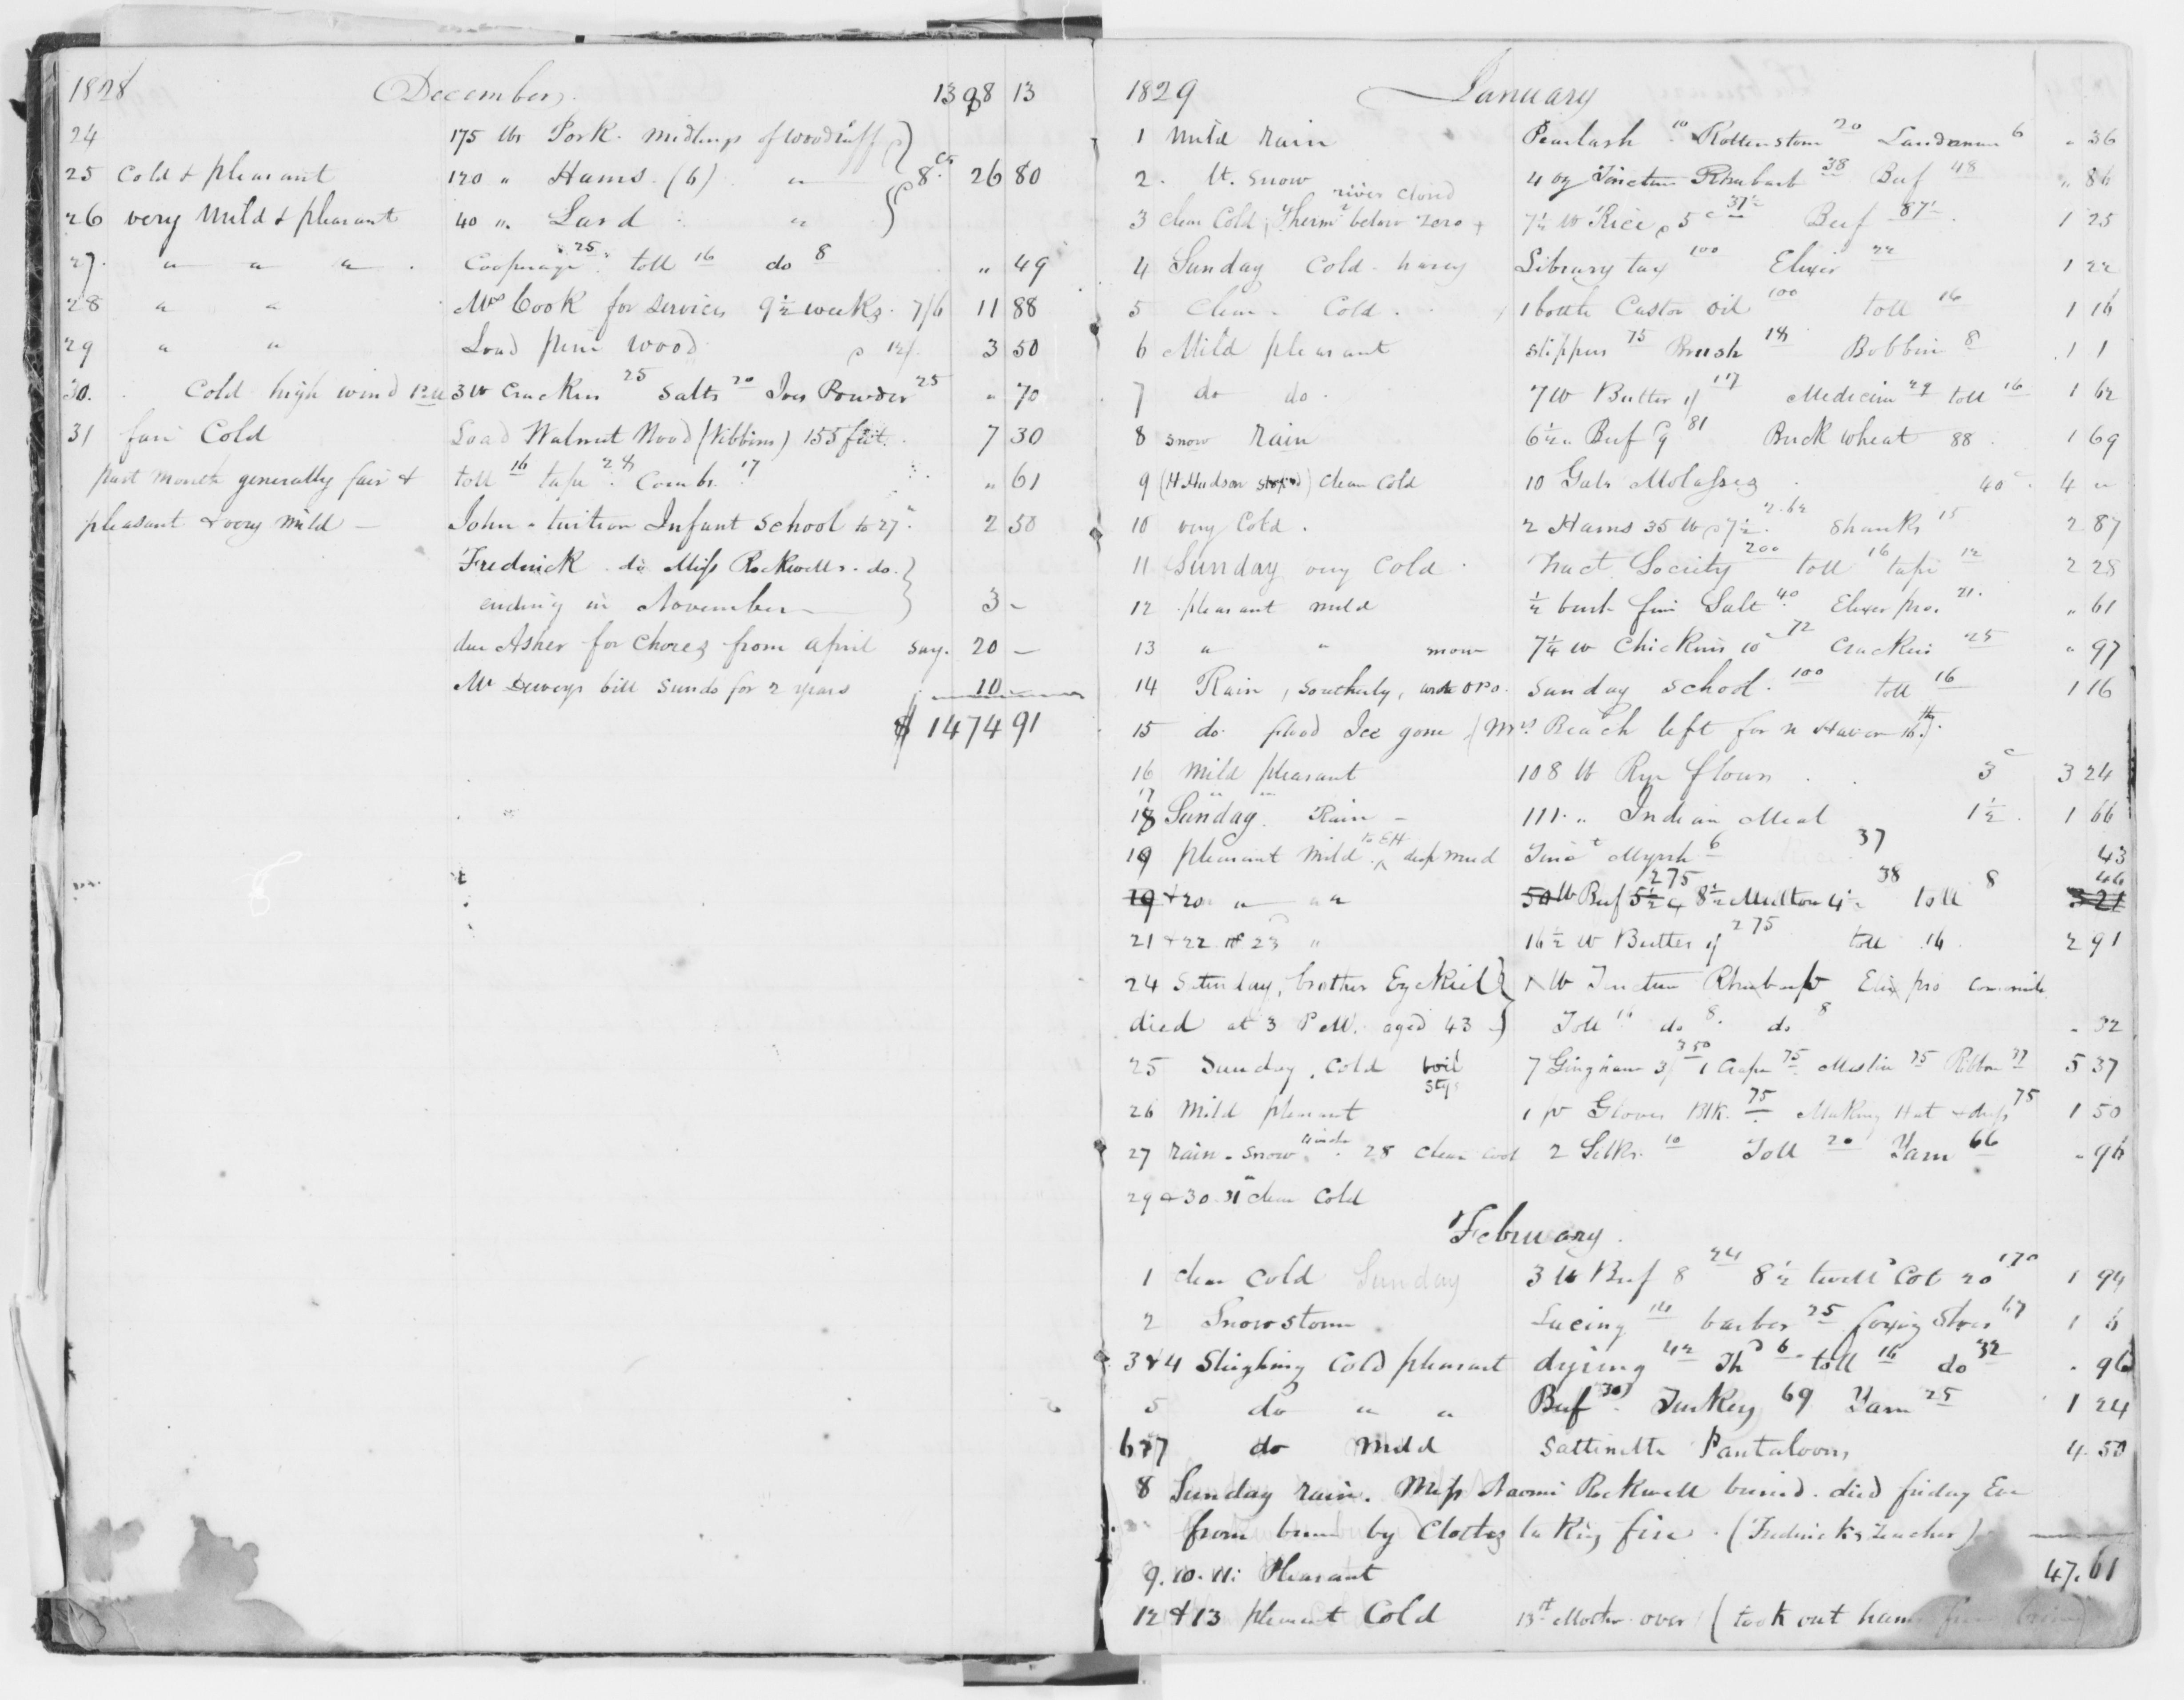 1828 December. 1398 13
24 175 lbs Pork. midlings of Woodruff
25 Cold & pleasant 120 " Hams. (6) " 8 cts 26 80
26 very Mild & pleasant 40 ". Lard "
27. " " " Cooperage 25 toll 16 do 8 " 49
28 " " Mrs Cook for services 9½ weeks. 7/6 11 88
29 " " Load pine wood 3 50
30. Cold high wind 3 lb Crackers 25 Salts 20 Powder 25 " 70
31 fair Cold Load Walnut Wood (Kibbins) 155 feet. 7 30
past month generally fair & toll 16 tape 28 Combs. 17 " 61
pleasant & very mild — John - tuition Infant School to 27. 2 50
Frederick do Miss Rockwells. do.
ending in November 3 -
due Asher for Chores from April say. 20 —
Mr Deweys bill sunds for 2 years 10 -
$ 1474 91
1829 January
1 Mild rain Pearlash 10 Rottenstone 20 Laudanum 6 " 36
2. lt. snow 4 oz Tincture Rhubarb 38 Beef 48 " 86
river closed
3 clear Cold, Therm 2 below zero + 7½ lb Rice 5c 37½ Beef 87½ 1 25
4 Sunday Cold. hazy Library tax 100 Elixir 22 1 22
5 Clear. Cold. 1 bottle Castor oil 100 toll 16 1 16
6 Mild pleasant slippers 75 Brush 18 Bobbin 8 1 1
7 do do. 7 lb Butter 1/ 117 Medicine 29 toll 16 1 62
8 snow rain 6½ " Beef 81 Buckwheat 88. 1 69
9 (H. Hudson stop'd) clear Cold 10 Gals Molasses 40c. 4 "
10 very Cold. 2 Hams 35 lb 7½. 2.62 Shanks 25 2 87
11 Sunday very Cold. Tract Society 200 toll 16 tape 12 2 28
12 pleasant mild ½ bush fine Salt 40 Elixer pro. 21. " 61
13 " " 7¼ lb Chickens 10c 72 Crackers 25 " 97
14 Rain, southerly, Sunday School. 100 toll 16 1 16
15 do. flood Ice gone (Mrs. Beach left for N Haven 16th).
16 Mild pleasant 108 lb Rye flour 3c 3 24
17 " "
18 Sunday. Rain - 111. " Indian Meal 1½. 1 66
19 pleasant mild. to EH deep mud Tinct Myrrh 6 37 43
19 & 20 " " " 50 lb Beef 5½ 275 8½ Mutton 4½ 38 toll 8 46 3 21
21 & 22 & 23 " 16½ lb Butter 1/ 275 toll 16 2 91
24 Saturday, brother Ezekiel Tincture Rhubarb Elix pro
died at 3 P.M. aged 43 Toll 16 do 8. do 8 " 32
25 Sunday. Cold 7 Gingham 3/ 350 1 Crape 75 Muslin 75 Ribbon 37 5 37
26 Mild pleasant 1 pr Gloves Blk. 75 Making Hat & drss 75 1 50
27 rain - snow 28 clear cool 2 Silks. 10 Toll 20 Yarn 66 " 96
29 & 30 31 clear Cold
February.
1 clear Cold Sunday 3 lb Beef 8 24 8½ twill'd Cot 20 170 1 94
2 Snow storm Lacing 14 barber 25 foxing Shoes 67 1 6
3 & 4 Sleighing Cold pleasant dying 42 Th'd 6 toll 16 do 32 " 96
5 do " " Beef 30 Turkey 69 Yarn 25 1 24
6 & 7 do mild Sattinette Pantaloons 4 50
8 Sunday rain. Miss Naomi Rockwell buried. died friday Eve
from burn by Clothes taking fire. (Fredericks teacher)
9. 10. 11: Pleasant 47. 61
12 & 13 pleasant Cold 13th Mother over (took out hams